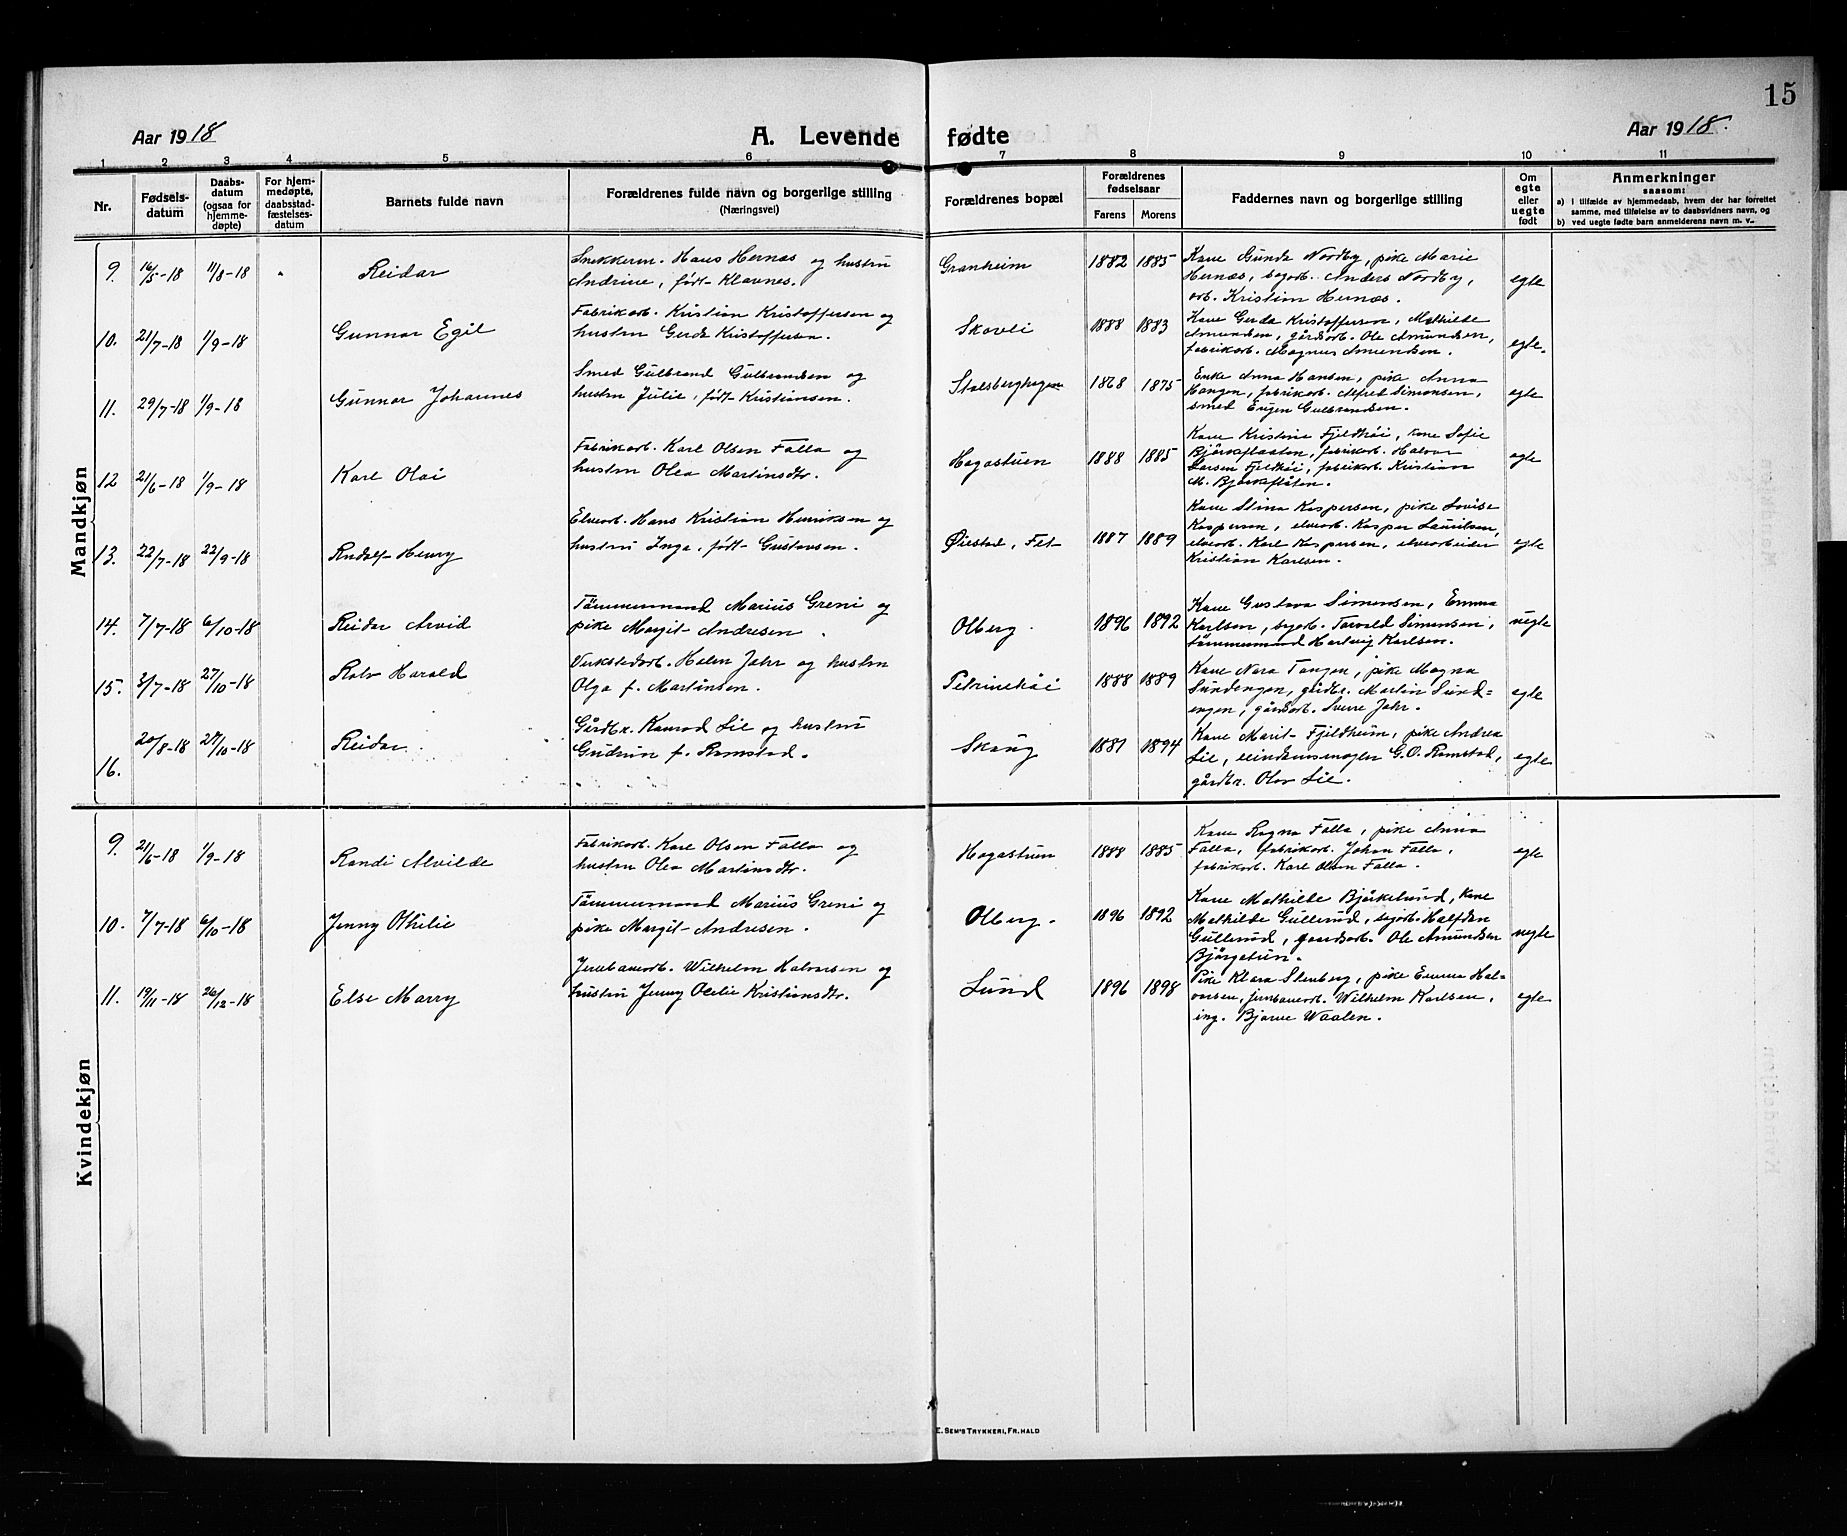 15
Aar 1918
A. Levende fødte
Aar 1918.
1 2 3 4 5 6 7 8 9 10 11
Nr.
Fødsels-
datum
Daabs-
datum
(ogsaa for
hjemme-
døpte)
For hjem-
medøpte,
daabsstad-
fæstelses-
datum
Barnets fulde navn
Forældrenes fulde navn og borgerlige stilling
(Næringsvei)
Forældrenes bopæl
Forældrenes
fødselsaar
Farens Morens
Faddernes navn og borgerlige stilling
Om
egte
eller
uegte
født
Anmerkninger
saasom:
a) i tilfælde av hjemmedaab, hvem der har forrettet
samme, med tilføielse av to daabsvidners navn, og
b) ved uegte fødte barn anmelderens navn m. v.
Mandkjøn
9. 16/5-18 11/8-18 Reidar
Snekkerm. Hans Hernæs og hustru
Andrine, født Klavnes.
Granheim 1882 1885
Kone Gunda Nordby, pike Marie
Hernæs, sagarb. Anders Nordby,
arb. Kristian Hernæs.
egte
10. 21/7-18 1/9-18 Gunnar Egil
Fabrikarb. Kristian Kristoffersen og
hustru Gerda Kristoffersen.
Skovli 1888 1883
Kone Gerda Kristoffersen, Mathilde
Amundsen, gårdsarb. Ole Amundsen,
fabrikarb. Magnus Amundsen.
egte.
11. 29/7-18 1/9-18 Gunnar Johannes
Smed Gulbrand Gulbrandsen og
hustru Julie, født Kristiansen.
Stalsberghagen 1868 1875
Enke Anna Hansen, pike Anna
Haugen, fabrikarb. Alfred Simonsen,
smed Eugen Gulbrandsen.
egte
12 21/6-18 1/9-18 Karl Olai
Fabrikarb. Karl Olsen Falla og
hustru Olea Martinsdtr.
Hagastuen 1888 1885
Kone Kristine Fjeldhøi, kone Sofie
Bjørkeflaaten, fabrikarb. Halvor
Larsen Fjeldhøi, fabrikarb. Kristian
M. Bjørkeflåten.
egte
13. 22/7-18 22/9-18 Rudolf Henry
Elvearb. Hans Kristian Henriksen og
hustru Inga, født Gustavsen.
Øiestad, Fet 1887 1889
Kone Stina Kaspersen, pike Lovise
Kaspersen, elvearb. Kasper Lauritsen,
elvearb. Karl Kaspersen, elvearbeider
Kristian Karlsen.
egte
14. 7/7-18 6/10-18 Reidar Arvid
Tømmermand Marius Greni og
pike Margit Andresen.
Olberg. 1896 1892
Kone Gustava Simensen, Emma
Karlsen, sagarb. Torvald Simensen,
tømmermand Hartvig Karlsen.
uegte
15. 3/7-18 27/10-18 Rolv Harald
Verkstedarb. Helm Jahr og hustru
Olga f. Martinsen.
Petrinehøi 1888 1889
Kone Nora Tangen, pike Magna
Sundengen, gårdbr. Martin Sund=
engen, gårdsarb. Sverre Jahr.
egte
16. 20/8-18 27/10-18 Reidar.
Gårdbr. Konrad Lie og hustru
Gudrun f. Ramstad.
Skaug 1881 1894
Kone Marit Fjeldheim, pike Andrea
Lie, eiendomsmægler G.O. Ramstad,
gårdbr. Olav Lie.
egte
Kvindekjøn
9. 21/6-18 1/9-18 Randi Alvilde
Fabrikarb. Karl Olsen Falla og
hustru Olea Martinsdtr.
Hagastuen 1888 1885
Kone Ragna Falla, pike Anna
Falla, fabrikarb. Johan Falla,
fabrikarb. Karl Olsen Falla.
egte
10. 7/7-18 6/10-18 Jenny Othilie
Tømmermand Marius Greni og
pike Margit Andresen.
Olberg. 1896 1892
Kone Mathilde Bjørkelund, kone
Mathilde Gullerud, sagarb. Halfdan
Gullerud, gaardsarb. Ole Amundsen
Bjørgetun.
uegte
11. 19/11-18 26/12-18 Else Marry
Jernbanearb. Wilhelm Halvorsen og
hustru Jenny Otelie Kristiansdtr.
Lund 1896 1898
Pike Klara Stenberg, pike Emma Hal-
vorsen, jernbanearb. Wilhelm Karlsen,
ing. Bjarne Waalen.
egte
E. SEM'S TRYKKERI, FR.HALD